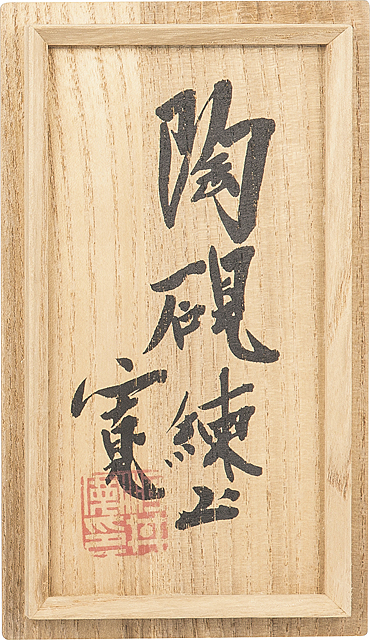 陶硯練上
寛